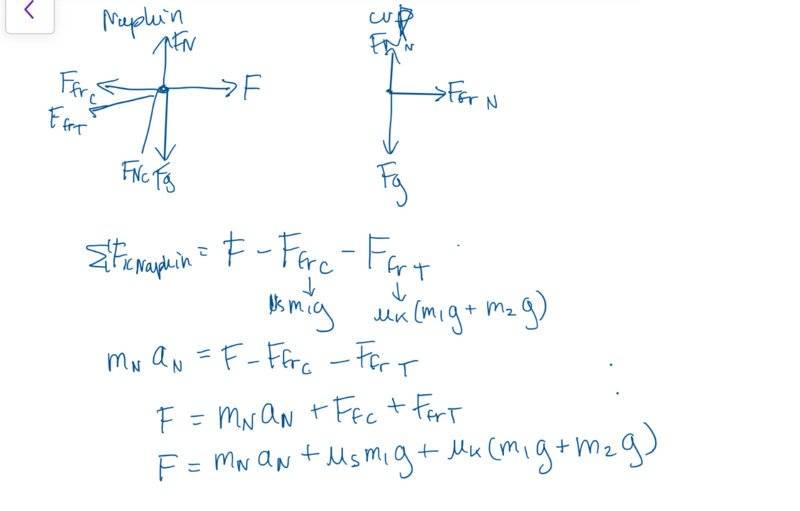 Napkin cup
FN FNN
Ffrc F Ffr N
FfrT
FNc Fg Fg
ΣFxNapkin = F - Ffrc - Ffr T
↓ ↓
μsm1g μk(m1g + m2g)
mN aN = F - Ffrc - Ffr T
F = mN aN + Ffc + FfrT
F = mN aN + μsm1g + μk(m1g + m2g)